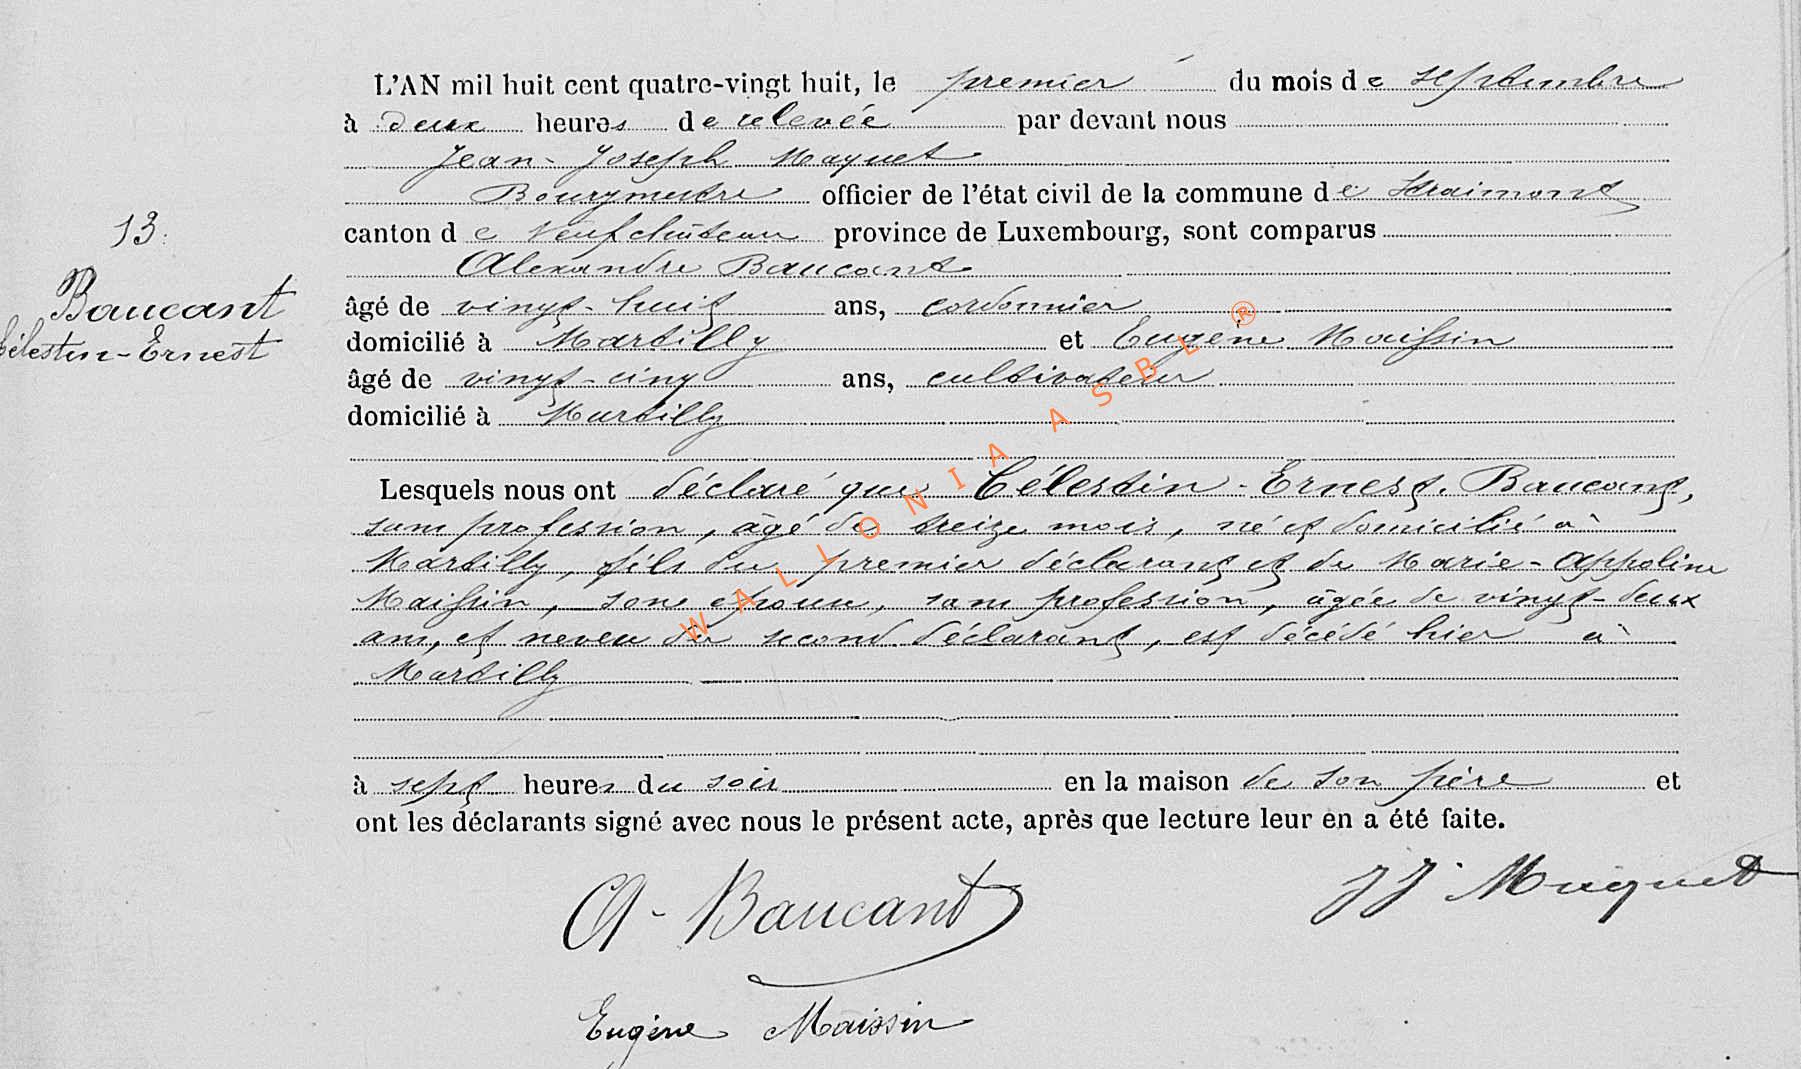 L'AN mil huit cent quatre-vingt huit, le premier du mois de septembre
à deux heures de relevée par devant nous
Jean-Joseph Maquet
Bourgmestre officier de l'état civil de la commune de Straimont
13.
canton de Neufchâteau province de Luxembourg, sont comparus
Alexandre Baucant
Baucant
Célestin-Ernest
âgé de vingt-huit ans, cordonnier
domicilié à Martilly et Eugène Maissin
âgé de vingt-cinq ans, cultivateur
domicilié à Martilly
Lesquels nous ont déclaré que Célestin-Ernest Baucant,
sans profession, âgé de treize mois, né et domicilié à
Martilly, fils du premier déclarant et de Marie-Appoline
Maissin, son épouse, sans profession, âgée de vingt-deux
ans, et neveu du second déclarant, est décédé hier à
Martilly
à sept heures du soir en la maison de son père et
ont les déclarants signé avec nous le présent acte, après que lecture leur en a été faite.
A. Baucant
JJ Maquet
Eugène Maissin
WALLONIA ASBL ®